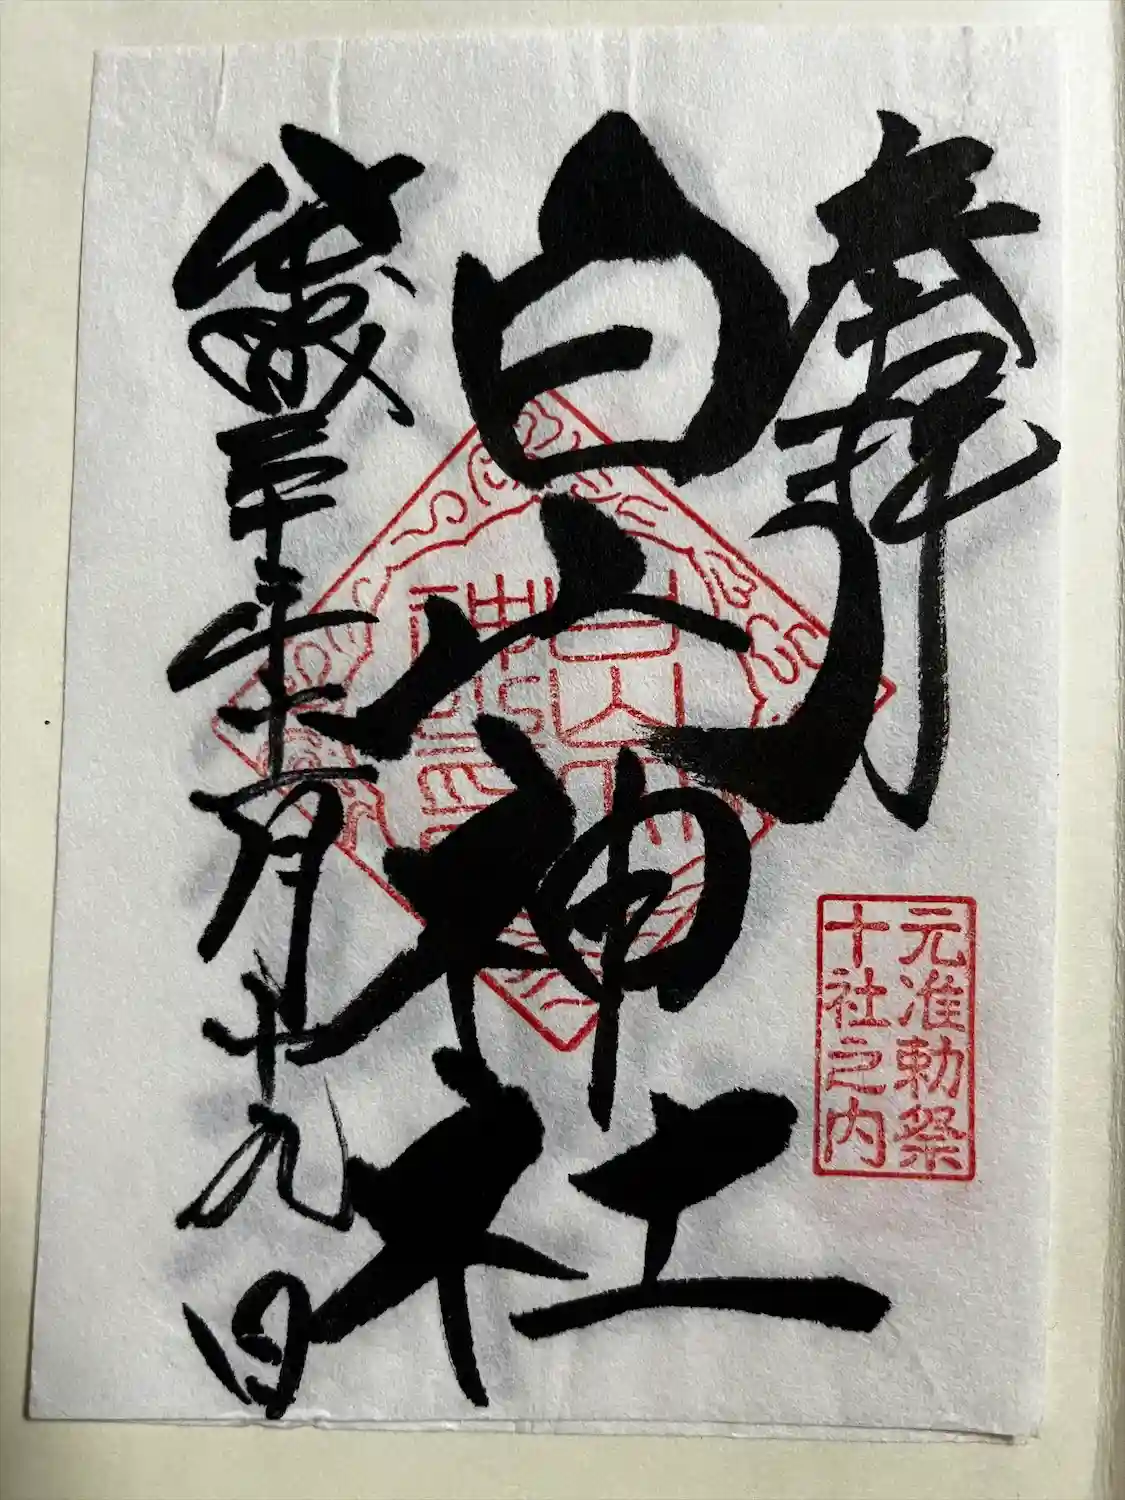 奉拝
白山神社
歳 年 月十九日
元准勅祭
十社之内